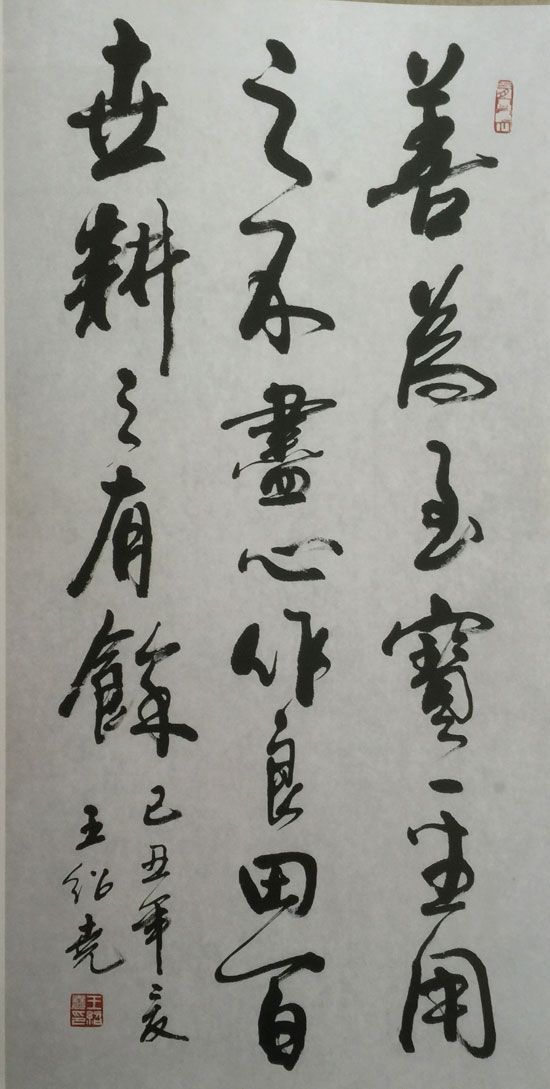 善為至寶一生用
之不盡心作良田百
世耕之有餘
己丑年之夏
王紹堯